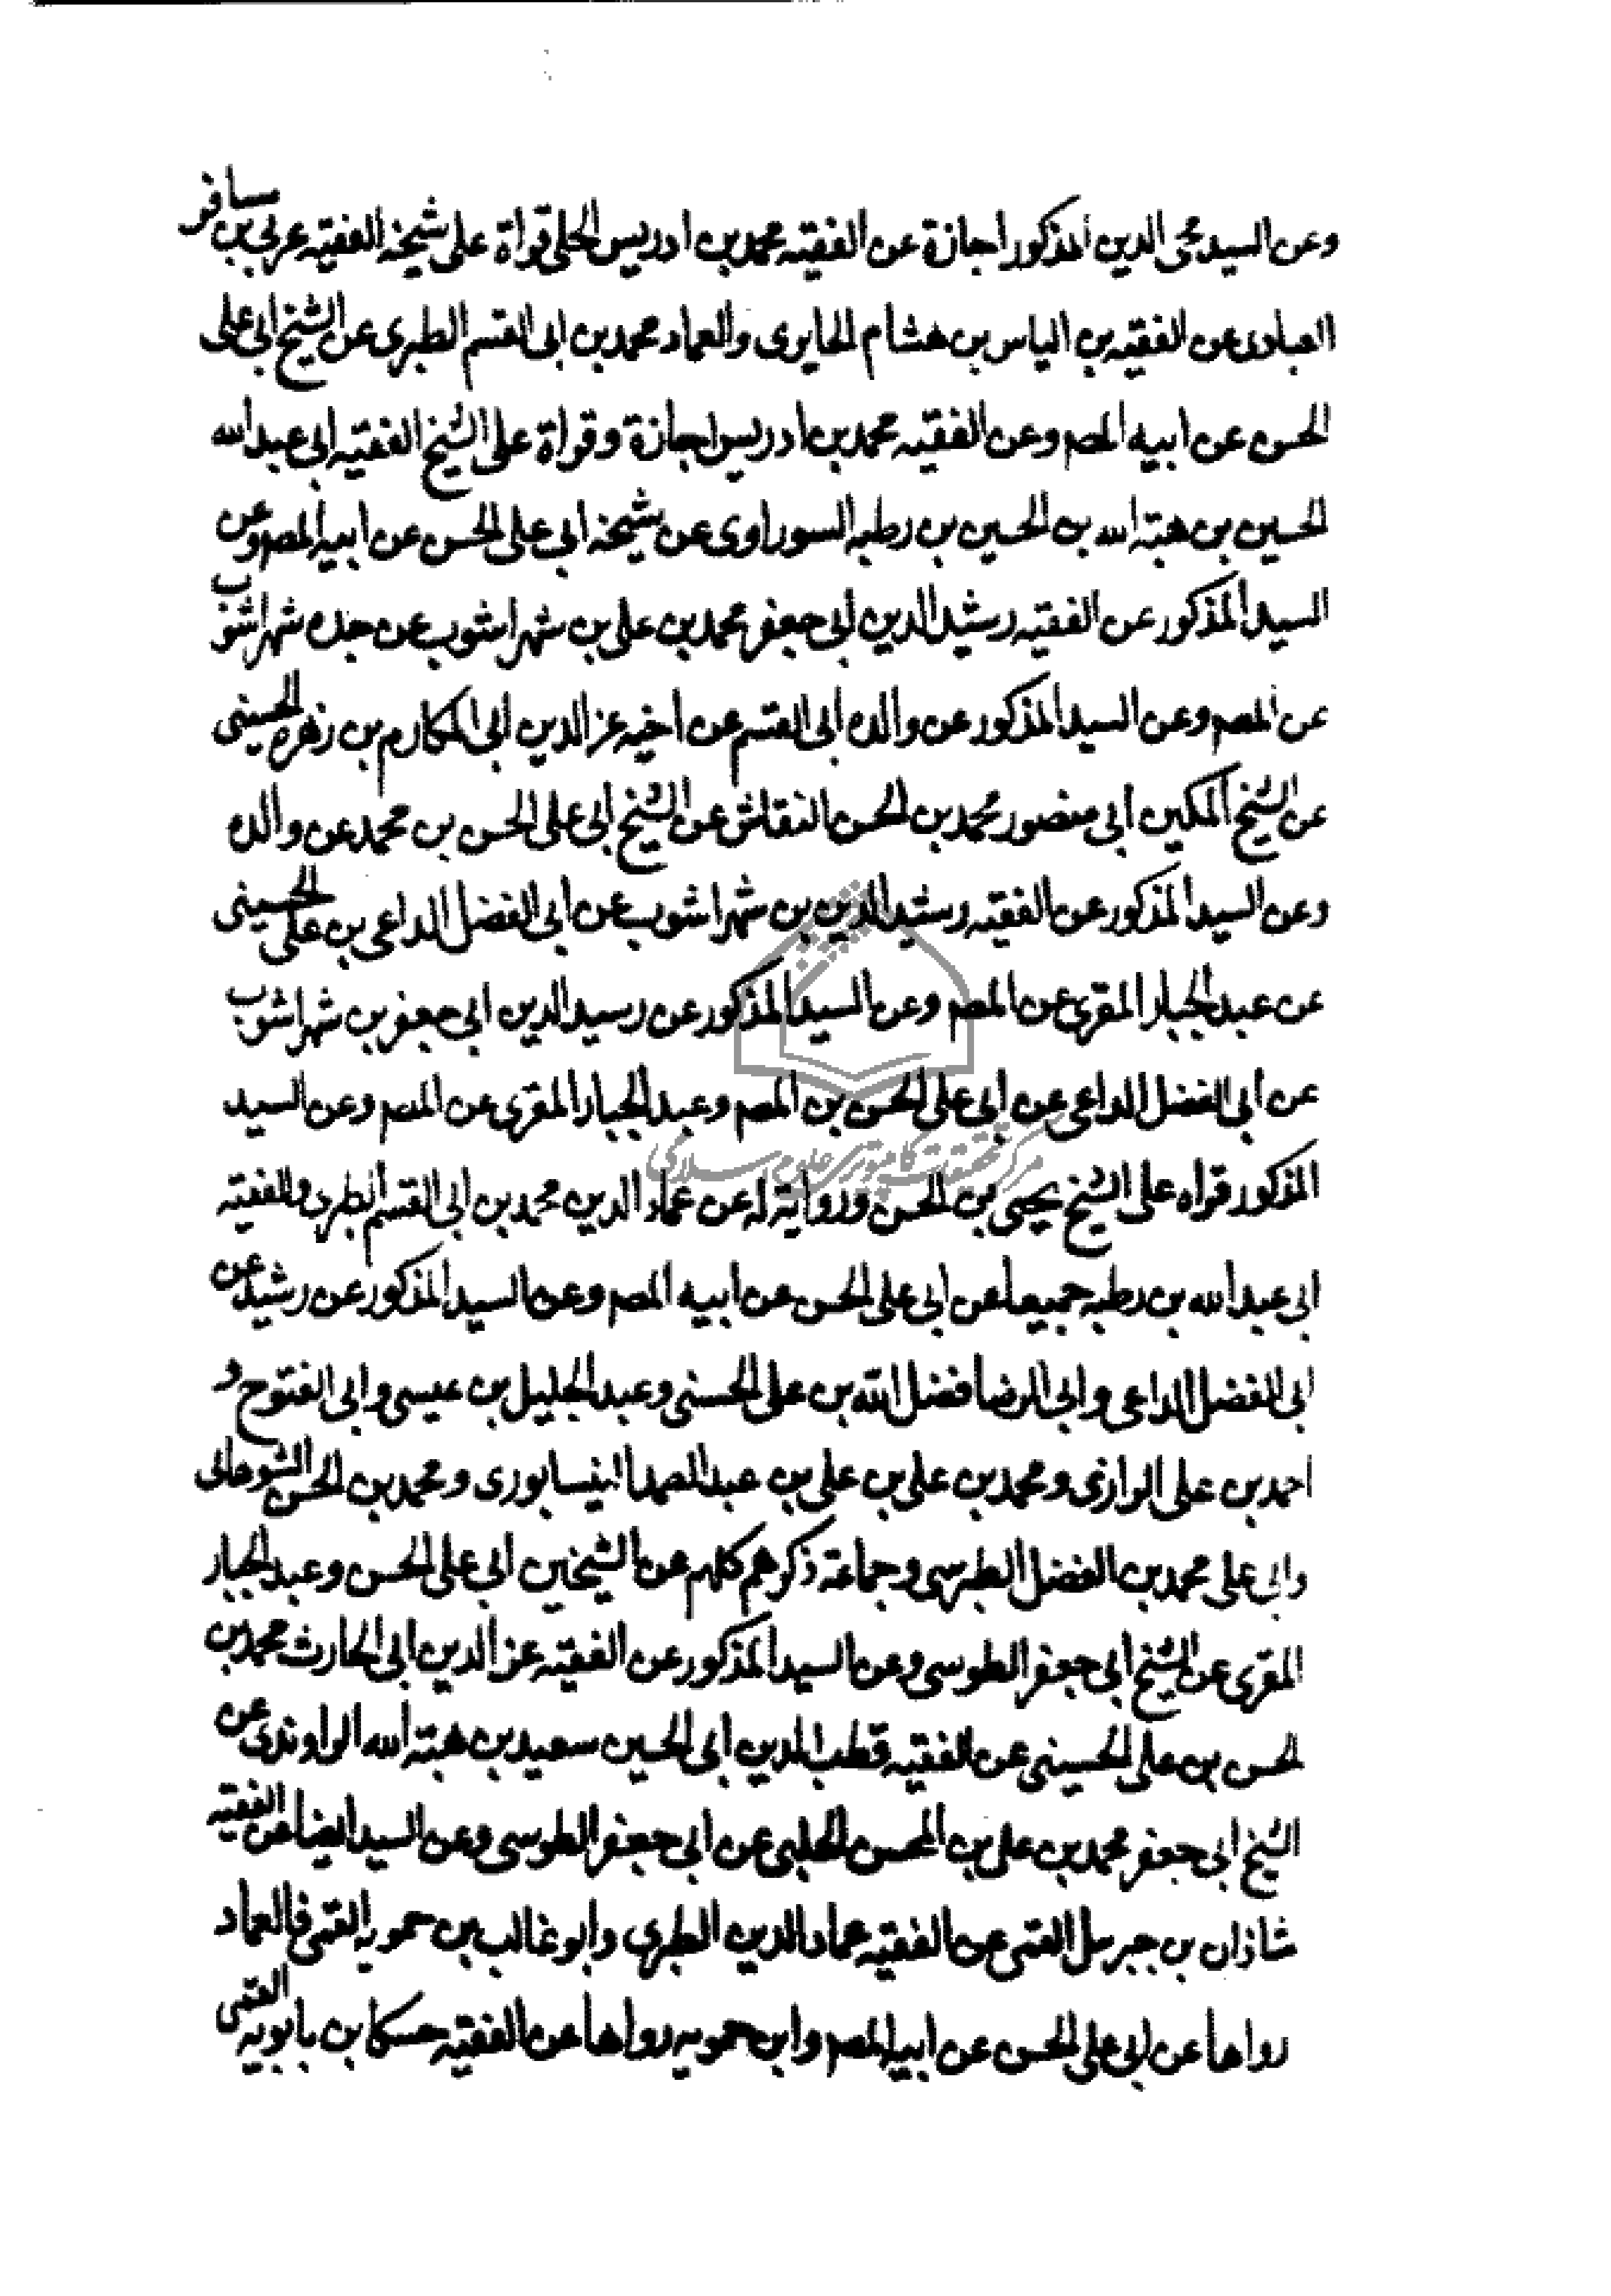 وعن السيد محى الدين المذكور اجازة عن الفقيه محمد بن ادريس الحلى قراة على شيخه الفقيه عربى بن مسافر
العبادى عن الفقيه بن الياس بن هشام الحايرى والعماد محمد بن ابى القسم الطبرى عن الشيخ ابى على
الحسن عن ابيه المصـ وعن الفقيه محمد بن ادريس اجازة وقراة على الشيخ الفقيه ابى عبد الله
الحسين بن هبة الله بن الحسين بن رطبه السوراوى عن شيخه ابى على الحسن عن ابيه المصـ وعن
السيد المذكور عن الفقيه رشيد الدين ابى جعفر محمد بن على بن شهراشوب عن جده شهراشوب
عن المصـ وعن السيد المذكور عن والده ابى القسم عن اخيه عز الدين ابى المكارم بن زهره الحسينى
عن الشيخ المكين ابى منصور محمد بن الحسن النقاش عن الشيخ ابى على الحسن بن محمد عن والده
وعن السيد المذكور عن الفقيه رشيد الدين بن شهراشوب عن ابى الفضل الداعى بن على الحسينى
عن عبد الجبار المقرى عن المصـ وعن السيد المذكور عن رسيد الدين ابى جعفر بن شهراشوب
عن ابى الفضل الداعى عن ابى على الحسن بن المصـ وعبد الجبار المقرى عن المصـ وعن السيد
مركز تحقيقات كامپيوتري علوم اسلامي
المذكور قراه على الشيخ يحيى بن الحسن ورواية له عن عماد الدين محمد بن ابى القسم الطبرى والفقيه
ابى عبد الله بن رطبه جميعا عن ابى على الحسن عن ابيه المصـ وعن السيد المذكور عن رشيد عن
ابى الفضل الداعى وابى الرضا فضل الله بن على الحسنى وعبد الجليل بن عيسى وابى الفتوح و
احمد بن على الرازى ومحمد بن على بن على بن عبد الصمد النيسابورى ومحمد بن الحسن الشوهانى
وابى على محمد بن الفضل الطبرسى وجماعة ذكرهم كلهم عن الشيخين ابى على الحسن وعبد الجبار
المقرى عن الشيخ ابى جعفر الطوسى وعن السيد المذكور عن الفقيه عز الدين ابى الحارث محمد بن
الحسن بن على الحسينى عن الفقيه قطب الدين ابى الحسين سعيد بن هبة الله الراوندى عن
الشيخ ابى جعفر محمد بن على بن المحسن الحلبى عن ابى جعفر الطوسى وعن السيد ايضا عن الفقيه
شاذان بن جبرىل القمى عن الفقيه عماد الدين الطبرى وابو غالب بن حمويه القمى فالعماد
رواها عن ابى على الحسن عن ابيه المصـ وابن حمويه رواها عن الفقيه حسكا بن بابويه القمى